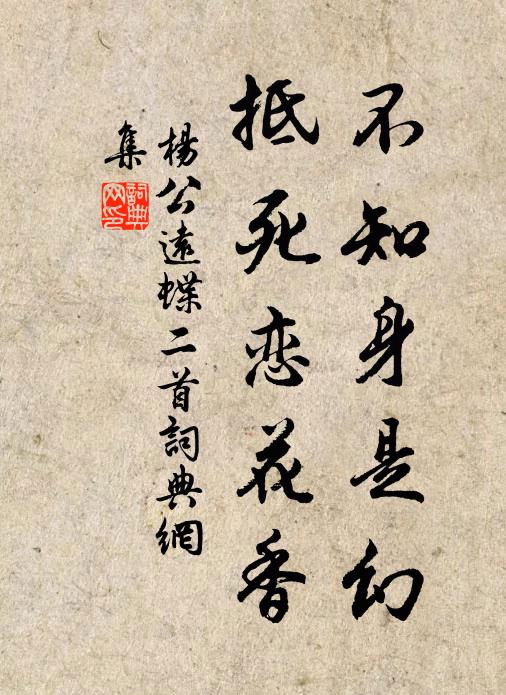 不知身是幻
抵死恋花香
楊公遠蝶二首詞典網
集
詞典
网印